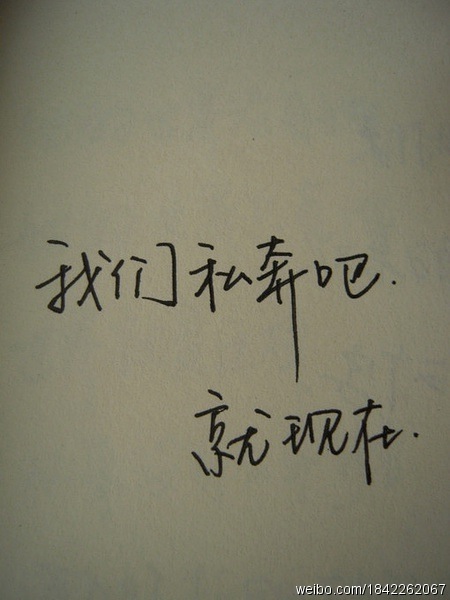 我们私奔吧.
就现在.
weibo.com/1842262067